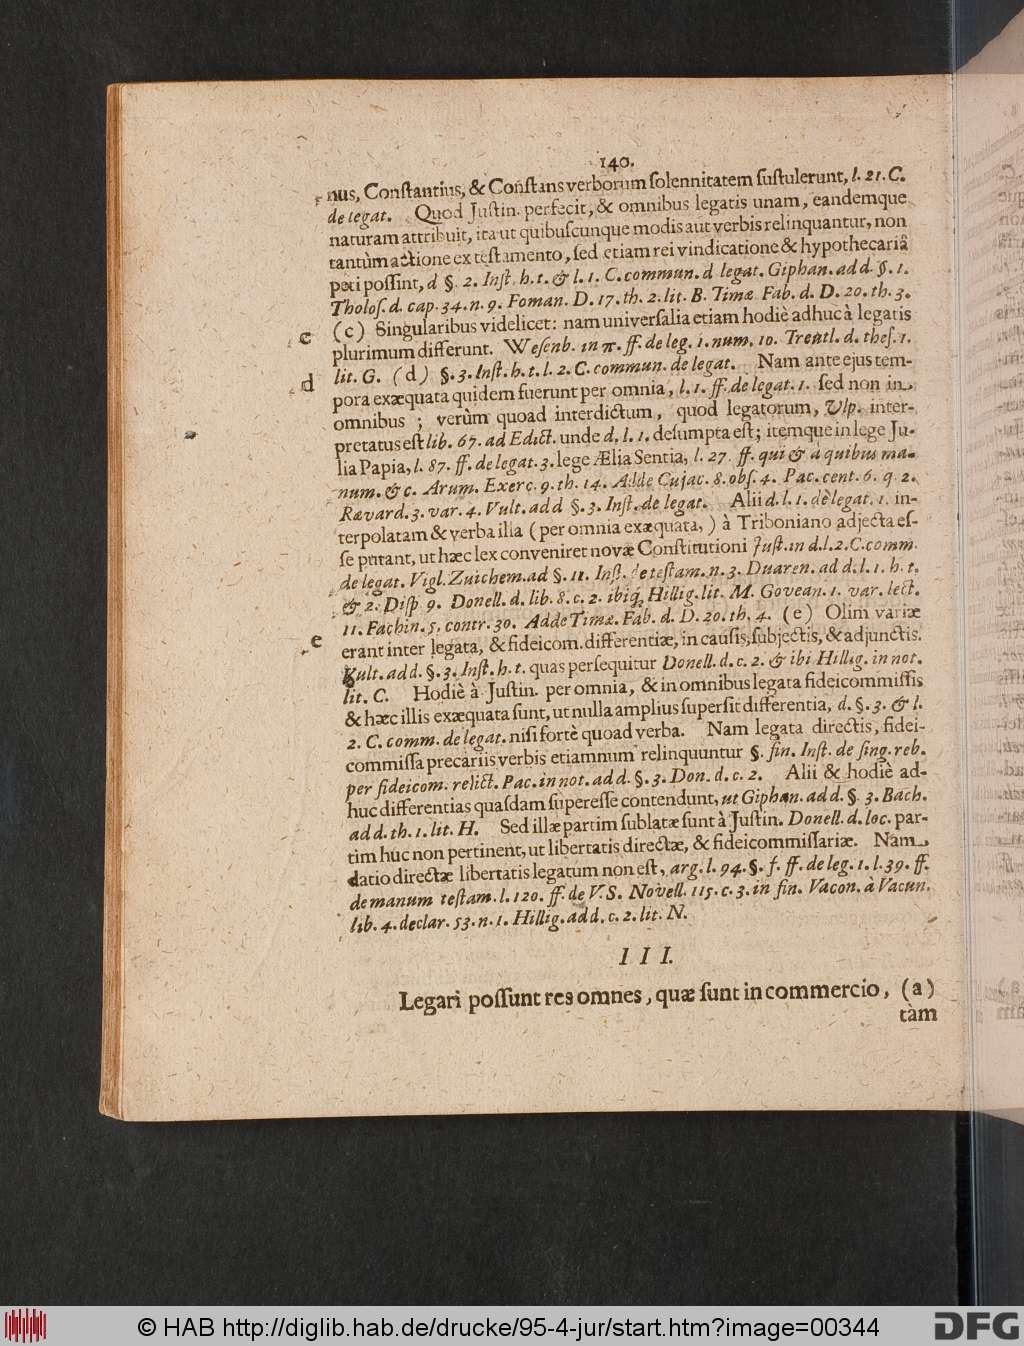 140.
nus, Constantius, & Constans verborum solennitatem sustulerunt, l. 21. C.
de legat. Quod Justin. perfecit, & omnibus legatis unam, eandemque
naturam attribuit, ita ut quibuscunque modis aut verbis relinquantur, non
tantùm actione ex testamento, sed etiam rei vindicatione & hypothecariâ
peti possint, d §. 2. Inst. h. t. & l. 1. C. commun. d legat. Giphan. ad d. §. 1.
Tholos. d. cap. 34. n. 9. Foman. D. 17. th. 2. lit. B. Timæ Fab. d. D. 20. th. 3.
c (c) Singularibus videlicet: nam universalia etiam hodiè adhuc à legatis
plurimum differunt. Wesenb. in π. ff. de leg. 1. num. 10. Treutl. d. thes. 1.
d lit. G. (d) §. 3. Inst. h. t. l. 2. C. commun. de legat. Nam ante ejus tem-
pora exæquata quidem fuerunt per omnia, l. 1. ff. de legat. 1. sed non in
omnibus; verùm quoad interdictum, quod legatorum, Ulp. inter-
pretatus est lib. 67. ad Edict. unde d. l. 1. desumpta est; itemque in lege Ju-
lia Papia, l. 87. ff. de legat. 3. lege Ælia Sentia, l. 27. ff. qui & à quibus ma-
num. &c. Arum. Exerc. 9. th. 14. Adde Cujac. 8. obs. 4. Pac. cent. 6. q. 2.
Rævard. 3. var. 4. Vult. add §. 3. Inst. de legat. Alii d. l. 1. de legat. 1. in-
terpolatam & verba illa (per omnia exæquata,) à Triboniano adjecta es-
se putant, ut hæc lex conveniret novæ Constitutioni Just. in d. l. 2. C. comm.
de legat. Vigl. Zuichem. ad §. 11. Inst. de testam. n. 3. Duaren. ad d. l. 1. h. t.
& 2. Disp 9. Donell. d. lib. 8. c. 2. ibiq; Hillig. lit. M. Govean. 1. var. lect.
11. Fachin. 5. contr. 30. Adde Timæ. Fab. d. D. 20. th. 4. (e) Olim variæ
e erant inter legata, & fideicom. differentiæ, in causis, subjectis, & adjunctis.
Vult. add. §. 3. Inst. h. t. quas persequitur Donell. d. c. 2. & ibi Hillig. in not.
lit. C. Hodiè à Justin. per omnia, & in omnibus legata fideicommissis
& hæc illis exæquata sunt, ut nulla amplius supersit differentia, d. §. 3. & l.
2. C. comm. de legat. nisi fortè quoad verba. Nam legata directis, fidei-
commissa precariis verbis etiamnum relinquuntur §. fin. Inst. de sing. reb.
per fideicom. relict. Pac. in not. ad d. §. 3. Don. d. c. 2. Alii & hodiè ad-
huc differentias quasdam superesse contendunt, ut Giphan. ad d. §. 3. Bach.
ad d. th. 1. lit. H. Sed illæ partim sublatæ sunt à Justin. Donell. d. loc. par-
tim huc non pertinent, ut libertatis directæ, & fideicommissariæ. Nam
datio directæ libertatis legatum non est, arg. l. 94. §. f. ff. de leg. 1. l. 39. ff.
de manum testam. l. 120. ff. de V. S. Novell. 115. c. 3. in fin. Vacon. à Vacun.
lib. 4. declar. 53. n. 1. Hillig. ad d. c. 2. lit. N.
III.
Legari possunt res omnes, quæ sunt in commercio, (a)
tàm
© HAB http://diglib.hab.de/drucke/95-4-jur/start.htm?image=00344
DFG